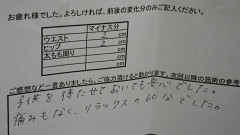 お疲れ様でした。よろしければ、前後の変化分のみご記入ください。
マイナス分
ウエスト 2 cm
ヒップ 2 cm
太もも周り cm
ご感想など一言ありましたら、ご協力頂けると助かります。次回以降の施術の参考
子供を待たせておいても安心でした。
痛みもなく、リラックスの60分でした。